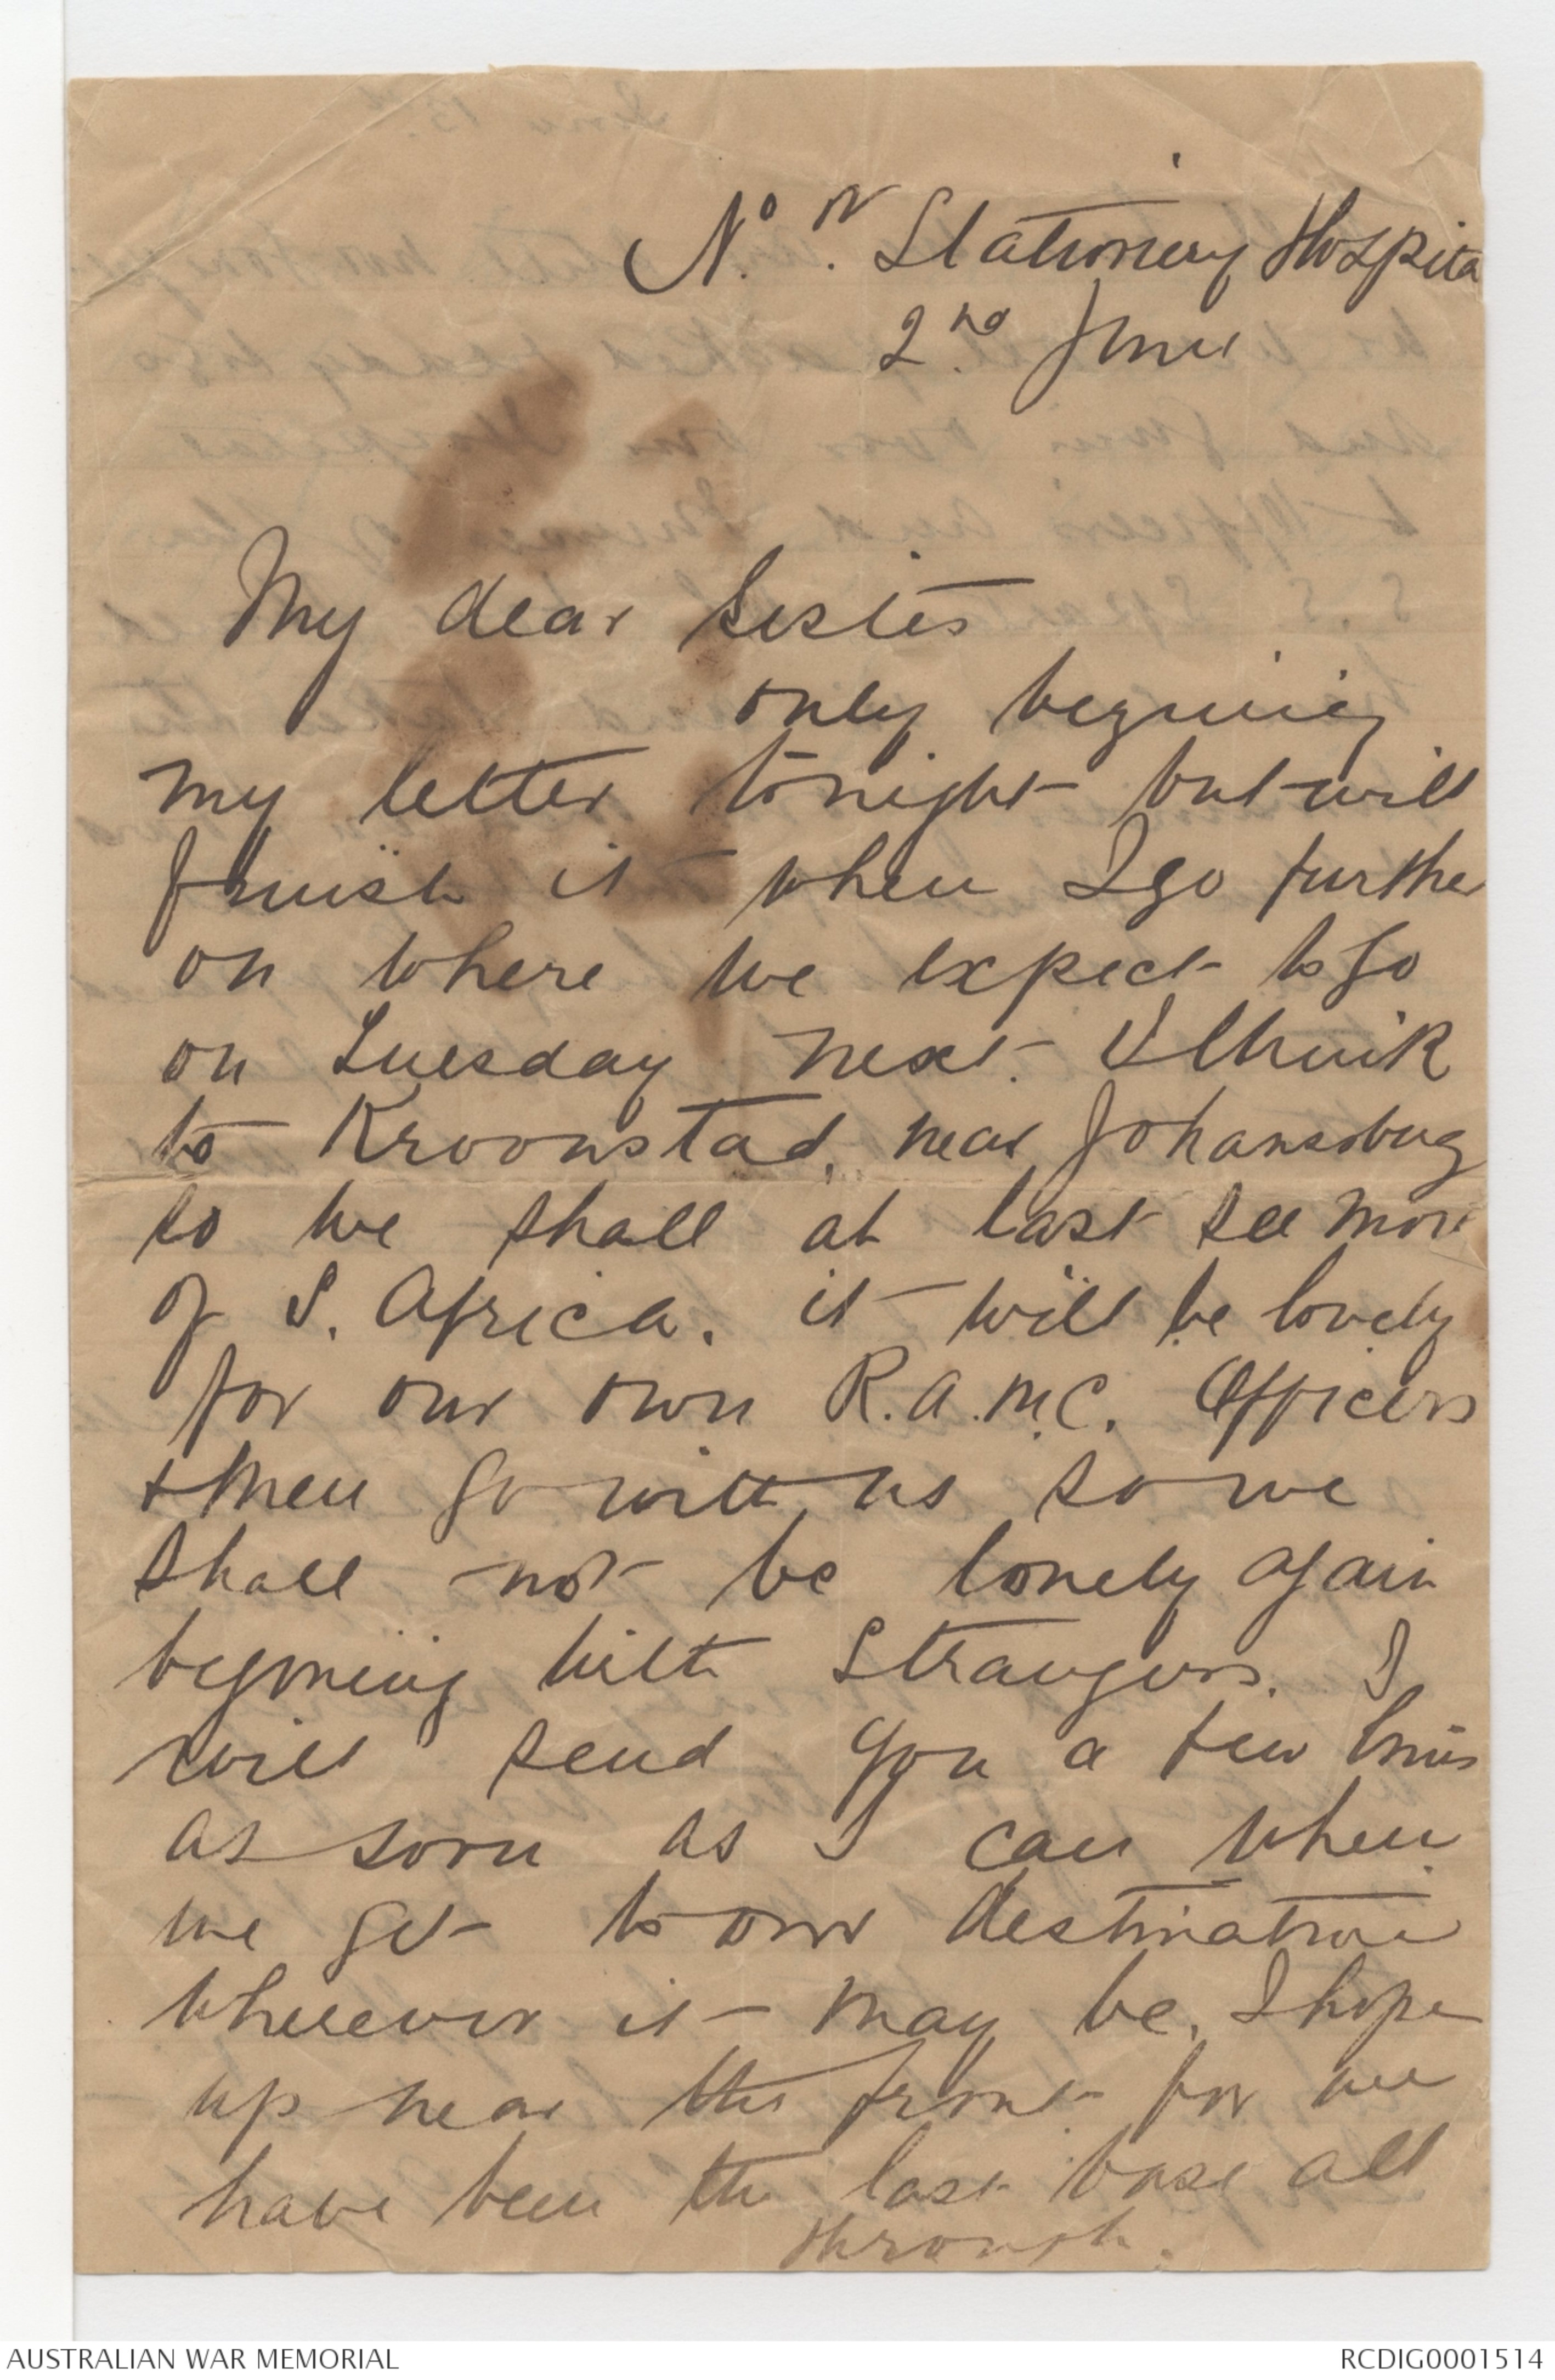 No. IV. Stationery Hospita
2nd. June
My dear Sister
only begining
my letter tonight but will
finish it when I go further
on where we expect to go
on Tuesday next. I think
to Kroonstad, near Johansburg
so we shall at last see more
of S. Africa. it will be lovely
for our own R.A.M.C. Officers
& men go with us so we
shall not be lonely again
begining with Strangers. I
will send you a few lines
as soon as I can when
we get to our destination
wherever it may be, I hope
up near the front for we
have been the last base all
through.
AUSTRALIAN WAR MEMORIAL
RCDIG0001514